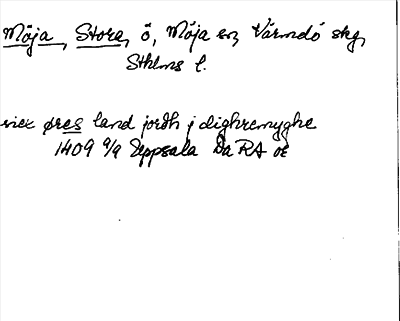 Möja, Stora, ö, Möja sn, Värmdö skg,
Sthlms l.
siex øres land jordh j dighremyghe
1409 9/9 Uppsala Da RA oE